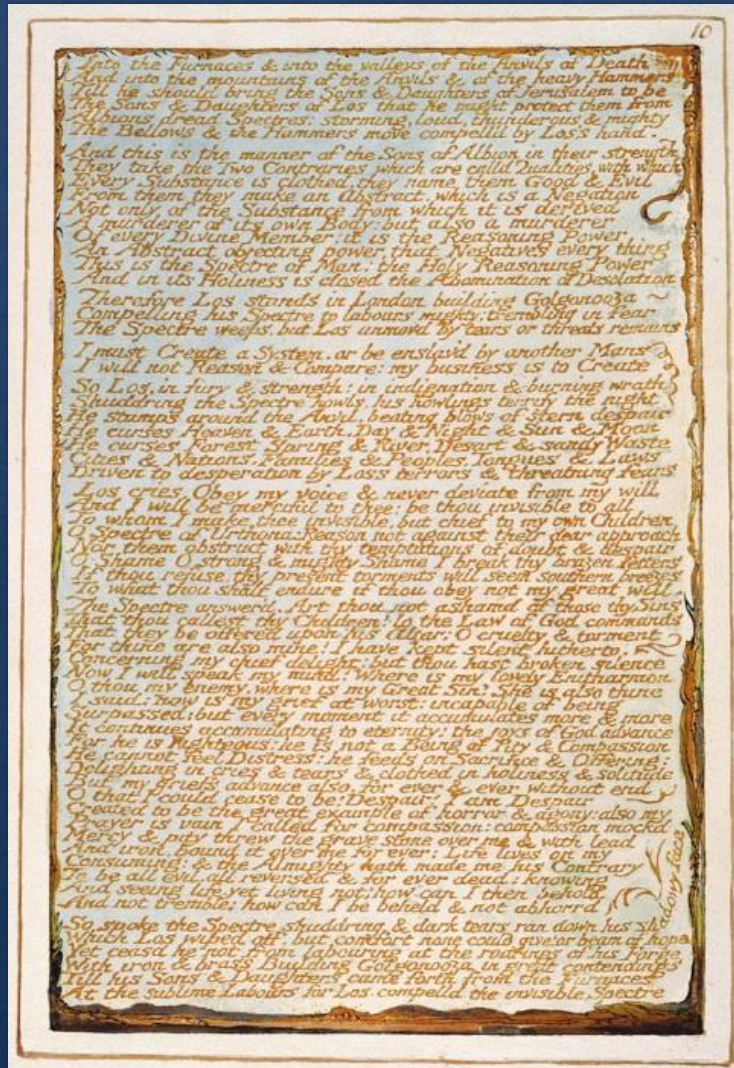 10
Into the Furnaces & into the valleys of the Anvils of Death
And into the mountains of the Anvils & of the heavy Hammers
Till he should bring the Sons & Daughters of Jerusalem to be
The Sons & Daughters of Los that he might protect them from
Albions dread Spectres; storming, loud, thunderous & mighty
The Bellows & the Hammers move compell'd by Los's hand.
And this is the manner of the Sons of Albion in their strength
They take the Two Contraries which are calld Qualities, with which
Every Substance is clothed, they name them Good & Evil
From them they make an Abstract, which is a Negation
Not only of the Substance from which it is derived
A murderer of its own Body: but also a murderer
Of every Divine Member: it is the Reasoning Power
An Abstract objecting power, that Negatives every thing
This is the Spectre of Man: the Holy Reasoning Power
And in its Holiness is closed the Abomination of Desolation
Therefore Los stands in London building Golgonooza
Compelling his Spectre to labours mighty; trembling in fear
The Spectre weeps, but Los unmovd by tears or threats remains
I must Create a System, or be enslav'd by another Mans
I will not Reason & Compare: my business is to Create
So Los, in fury & strength: in indignation & burning wrath
Shuddring the Spectre howls, his howlings terrify the night
He stamps around the Anvil, beating blows of stern despair
He curses Heaven & Earth, Day & Night & Sun & Moon
He curses Forest Spring & River, Desart & sandy Waste
Cities & Nations, Families & Peoples, Tongues & Laws
Driven to desperation by Los's terrors & threatning fears
Los cries, Obey my voice & never deviate from my will
And I will be merciful to thee: be thou invisible to all
To whom I make thee invisible, but chief to my own Children
O Spectre of Urthona: Reason not against their dear approach
Nor them obstruct with thy temptations of doubt & despair
O Shame O strong & mighty Shame I break thy brazen fetters
If thou refuse, thy present torments will seem southern breezes
To what thou shalt endure if thou obey not my great will.
The Spectre answer'd. Art thou not ashamd of those thy Sins
That thou callest thy Children? lo the Law of God commands
That they be offered upon his Altar: O cruelty & torment
For thine are also mine! I have kept silent hitherto,
Concerning my chief delight: but thou hast broken silence
Now I will speak my mind! Where is my lovely Enitharmon
O thou my enemy, where is my Great Sin? She is also thine
I said: now is my grief at worst: incapable of being
Surpassed: but every moment it accumulates more & more
It continues accumulating to eternity: the joys of God advance
For he is Righteous: he is not a Being of Pity & Compassion
He cannot feel Distress: he feeds on Sacrifice & Offering:
Delighting in cries & tears & clothed in holiness & solitude
But my griefs advance also, for ever & ever without end
O that I could cease to be! Despair! I am Despair
Created to be the great example of horror & agony: also my
Prayer is vain I called for compassion: compassion mockd
Mercy & pity threw the grave stone over me & with lead
And iron, bound it over me for ever: Life lives on my
Consuming: & the Almighty hath made me his Contrary
To be all evil, all reversed & for ever dead: knowing
And seeing life, yet living not; how can I then behold
And not tremble; how can I be beheld & not abhorrd
So spoke the Spectre shuddring, & dark tears ran down his shadowy face
Which Los wiped off, but comfort none could give! or beam of hope
Yet ceasd he not from labouring at the roarings of his Forge
With iron & brass Building Golgonooza in great contendings
Till his Sons & Daughters came forth from the Furnaces
At the sublime Labours for Los compelld the invisible Spectre